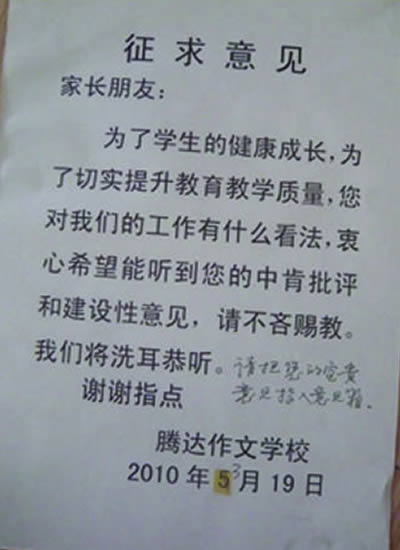 征求意见
家长朋友：
为了学生的健康成长，为
了切实提升教育教学质量，您
对我们的工作有什么看法，衷
心希望能听到您的中肯批评
和建设性意见，请不吝赐教。
我们将洗耳恭听。请把您的宝贵
谢谢指点 意见投入意见箱.
腾达作文学校
2010年53月19日